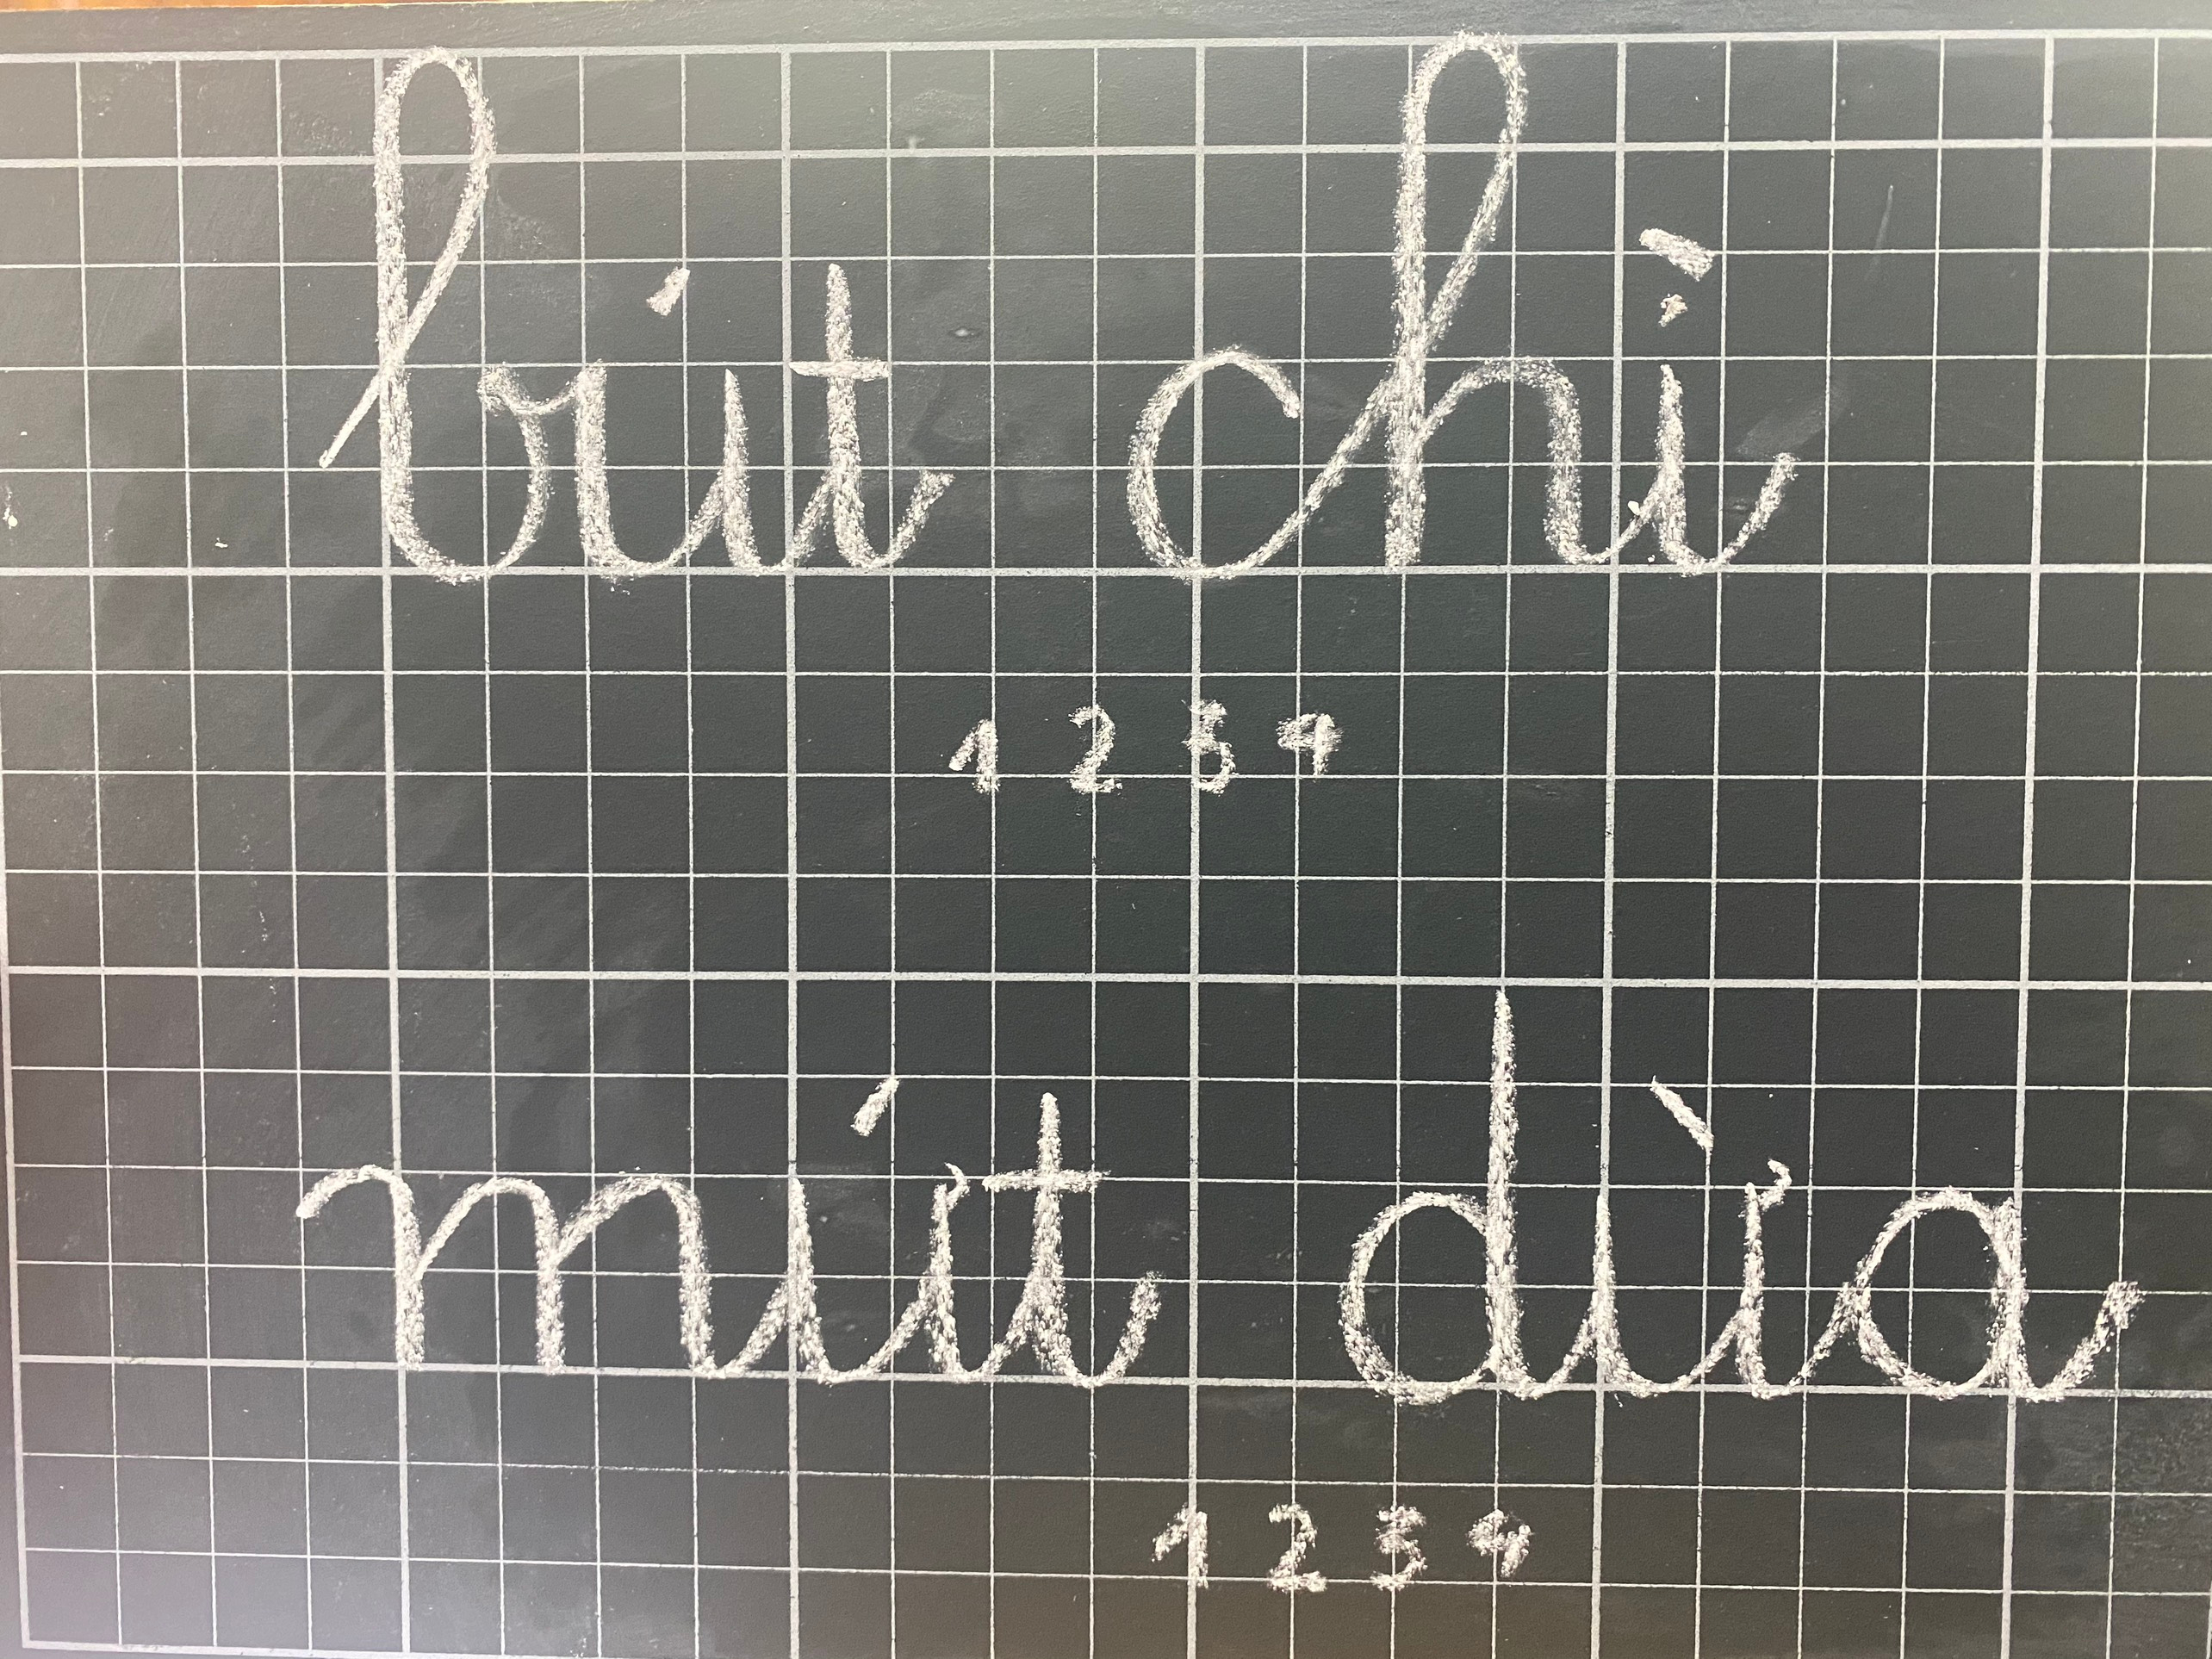 bút chì
1 2 3 4
mứt dừa
1 2 3 4